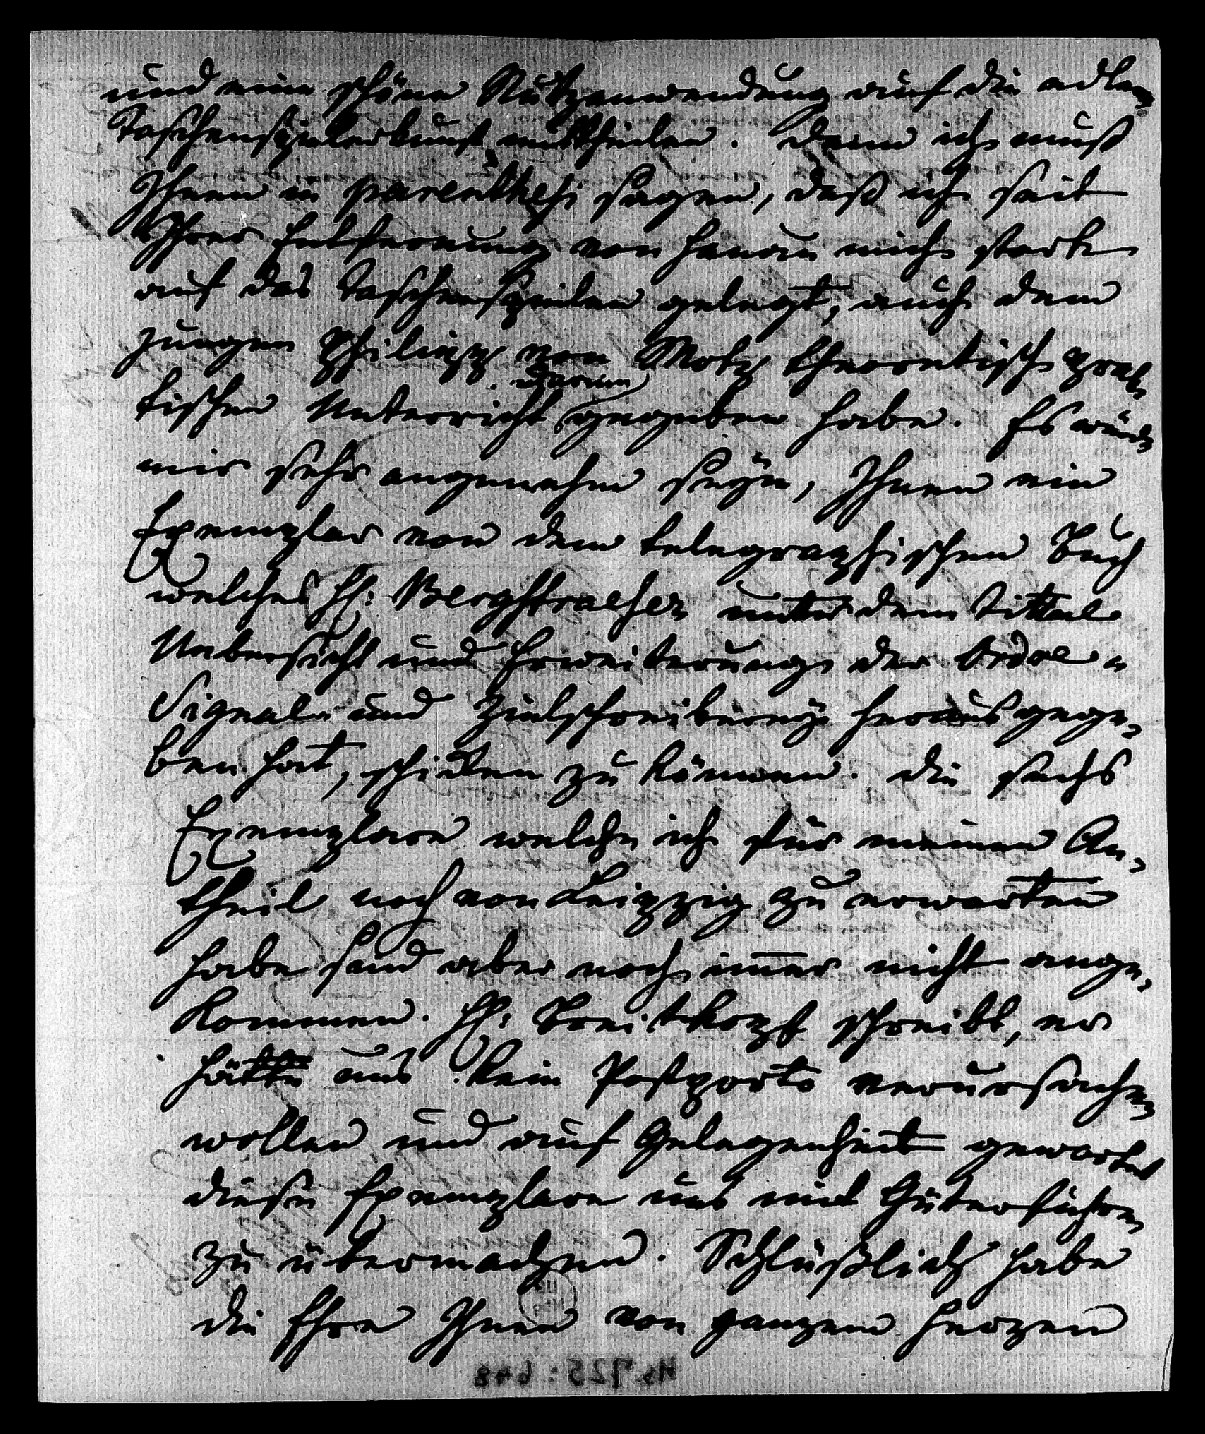 und eine schöne Nutzanwendung auf die edle
Taschenspielerkunst mittheilen. Denn ich muß
Ihnen in parenthesi sagen, daß ich seit
Ihrer Entfernung von Hanau mich stark
auf das Taschenspielen gelegt, auch dem
jungen Philipp von Motz theoretisch prak„
darinn
tischen Unterricht gegeben habe. Es würde
mir sehr angenehm seÿn, Ihnen ein
Exemplar von dem telegraphischen Buch
welches H: Bergstraeßer unter dem Tittel
Uebersicht und Erweiterung der Ordre„
Signal„ und Zielschreiberey herausgege„
ben hat, schicken zu können. Die sechs
Exemplare welche ich für meinen An„
theil noch von Leipzig zu erwarten
habe sind aber noch imer nicht ange„
kommen. H: Breitkopf schreibt, er
hätte uns kein Postporto verursachen
wollen und auf Gelegenheit gewartet
diese Exemplare uns mit Güterfuhren
zu übermachen. Schlüßlich habe
die Ehre Ihnen von ganzem Herzen
Hs. 725: 648